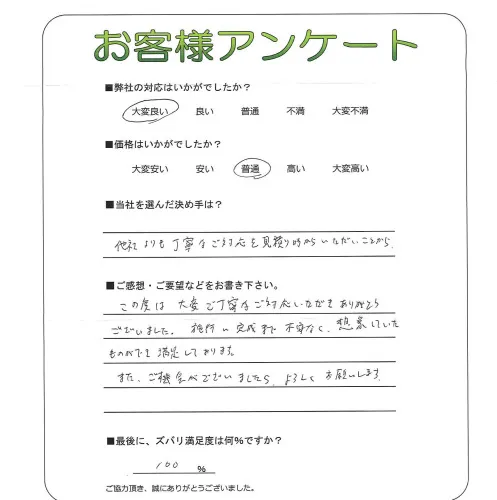 お客様アンケート
■弊社の対応はいかがでしたか？
大変良い 良い 普通 不満 大変不満
■価格はいかがでしたか？
大変安い 安い 普通 高い 大変高い
■当社を選んだ決め手は？
他社よりも丁寧なご対応を見積り時からいただいことから。
■ご感想・ご要望などをお書き下さい。
この度は大変ご丁寧なご対応いただきありがとう
ございました。 完成まで不安なく、想象していた
ものができ満足しております。
また、ご機会がございましたら、よろしくお願いします。
■最後に、ズバリ満足度は何%ですか？
100 %
ご協力頂き、誠にありがとうございました。